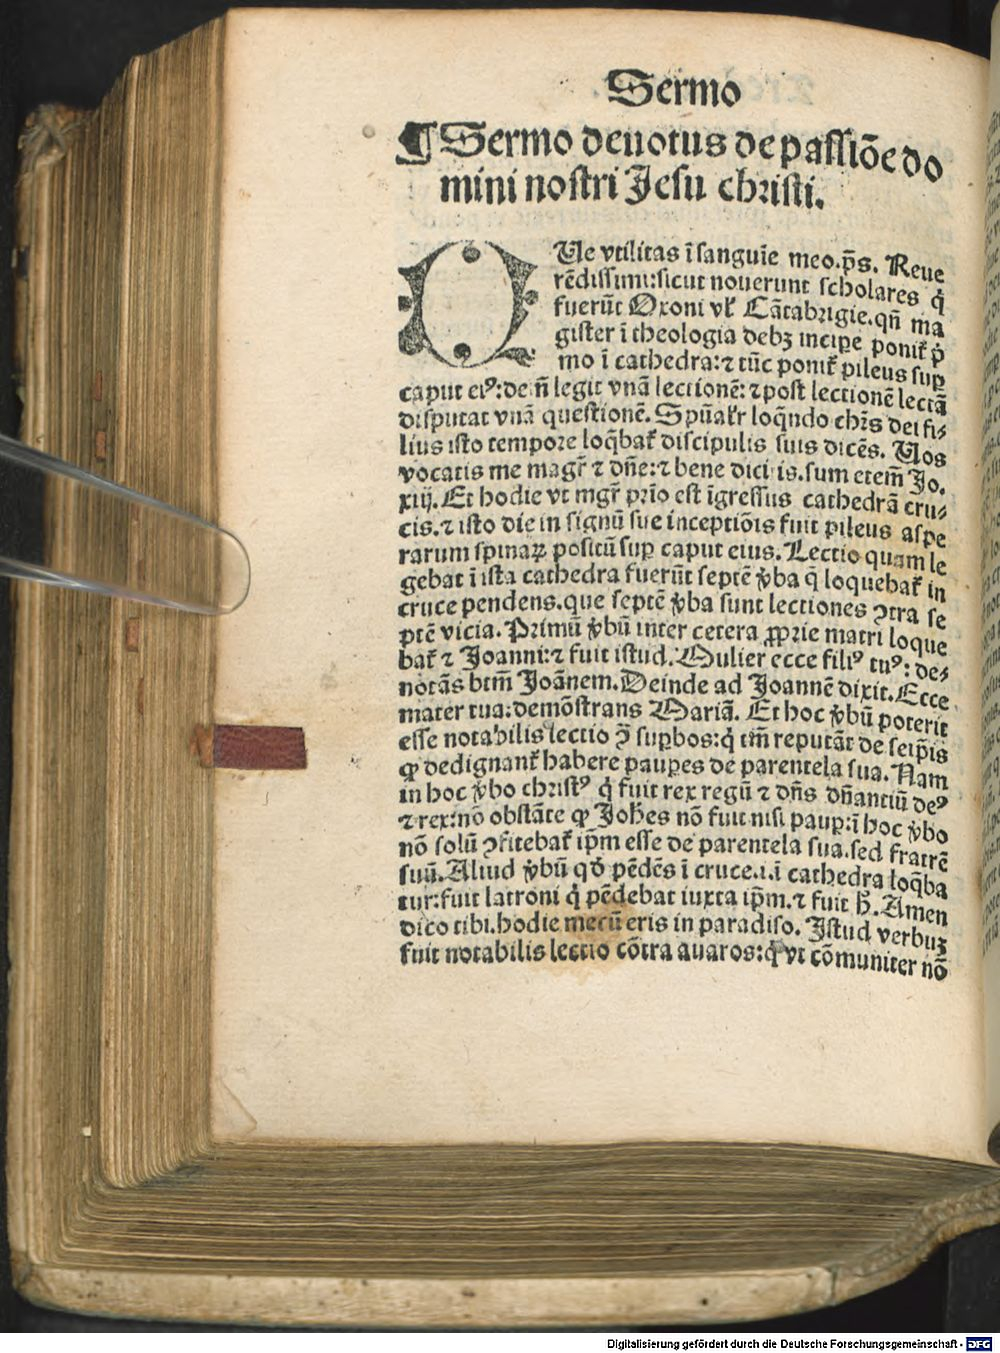 Sermo
¶ Sermo deuotus de passiōe do
mini nostri Jesu christi.
QUe vtilitas ī sanguīe meo.p̄s. Reue
rēdissimi:sicut nouerunt scholares q̇
fuerūt Oxoni vl̕ Cātabrigie.qn̄ ma
gister ī theologia debꝫ incipe ponit̕ ṗ
mo ī cathedra:⁊ tūc ponit̕ pileus suꝑ
caput eiꝰ:de n̄ legit vnā lectionē:⁊ post lectionē lectā
disputat vnā questionē. Spūalr̕ loq̄ndo chr̄s dei fi⸗
lius isto tempore loq̄bat̕ discipulis suis dicēs. Uos
vocatis me magr̄ ⁊ dn̄e:⁊ bene dicitis.sum etem̄ Jo.
xiij. Et hodie vt mgr̄ prīo est īgressus cathedrā cru⸗
cis.⁊ isto die in signū sue inceptiōis fuit pileus aspe
rarum spinaꝝ positū suꝑ caput eius. Lectio quam le
gebat ī ista cathedra fuerūt septē v̇ba q̄ loquebat̕ in
cruce pendens.que septē v̇ba sunt lectiones ꝯtra se
ptē vicia. Primū v̇bū inter cetera ꝓprie matri loque
bat̕ ⁊ Joanni:⁊ fuit istud. Mulier ecce filiꝰ tuꝰ: de⸗
notās btm̄ Joānem. Deinde ad Joannē dixit. Ecce
mater tua:demōstrans Mariā. Et hoc v̇bū poterit
esse notabilis lectio ꝯ̄ suꝑbos:q̇ tm̄ reputāt de seip̄is
ꝙ dedignant̕ habere pauꝑes de parentela sua. Nam
in hoc v̇bo christꝰ q̇ fuit rex regū ⁊ dn̄s dn̄antiū deꝰ
⁊ rex:nō obstāte ꝙ Joh̄es nō fuit nisi pauꝑ:ī hoc v̇bo
nō solū ꝯfitebat̕ ip̄m esse de parentela sua.sed fratrē
suū. Aliud v̇bū qd̕ pēdēs ī cruce.i.ī cathedra loq̄ba
tur:fuit latroni q̇ pēdebat iuxta ip̄m.⁊ fuit h̄. Amen
dico tibi.hodie mecū eris in paradiso. Istud verbuꝫ
fuit notabilis lectio cōtra auaros:q̇ vt cōmuniter nō
Digitalisierung gefördert durch die Deutsche Forschungsgemeinschaft - DFG